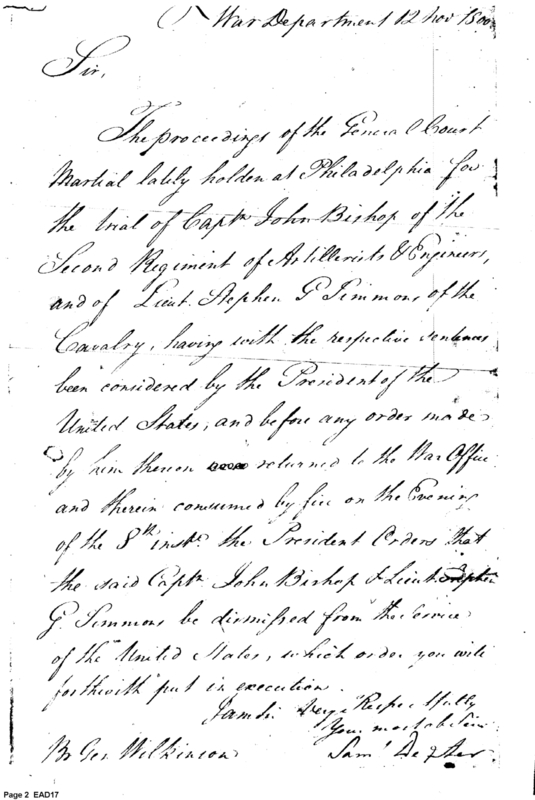 War Department 12 Nov 1800
Sir,
The proceedings of the General Court
Martial lately holden at Philadelphia for
the trial of Captn John Bishop of the
Second Regiment of Artillerists & Engineers,
and of Lieut. Stephen G Simmons of the
Cavalry, having with the respective sentences
been considered by the President of the
United States, and before any order made
by him thereon returned to the War Office
and therein consumed by fire on the Evening
of the 8th inst. the President Orders that
the said Captn John Bishop & Lieut. Stephen
G. Simmons be dismissed from the Service
of the United States, which order you will
forthwith put in execution.
I am Sir Very Respectfully
Your most ob Serv
Br Gen Wilkinson Saml Dexter.
Page 2 EAD17